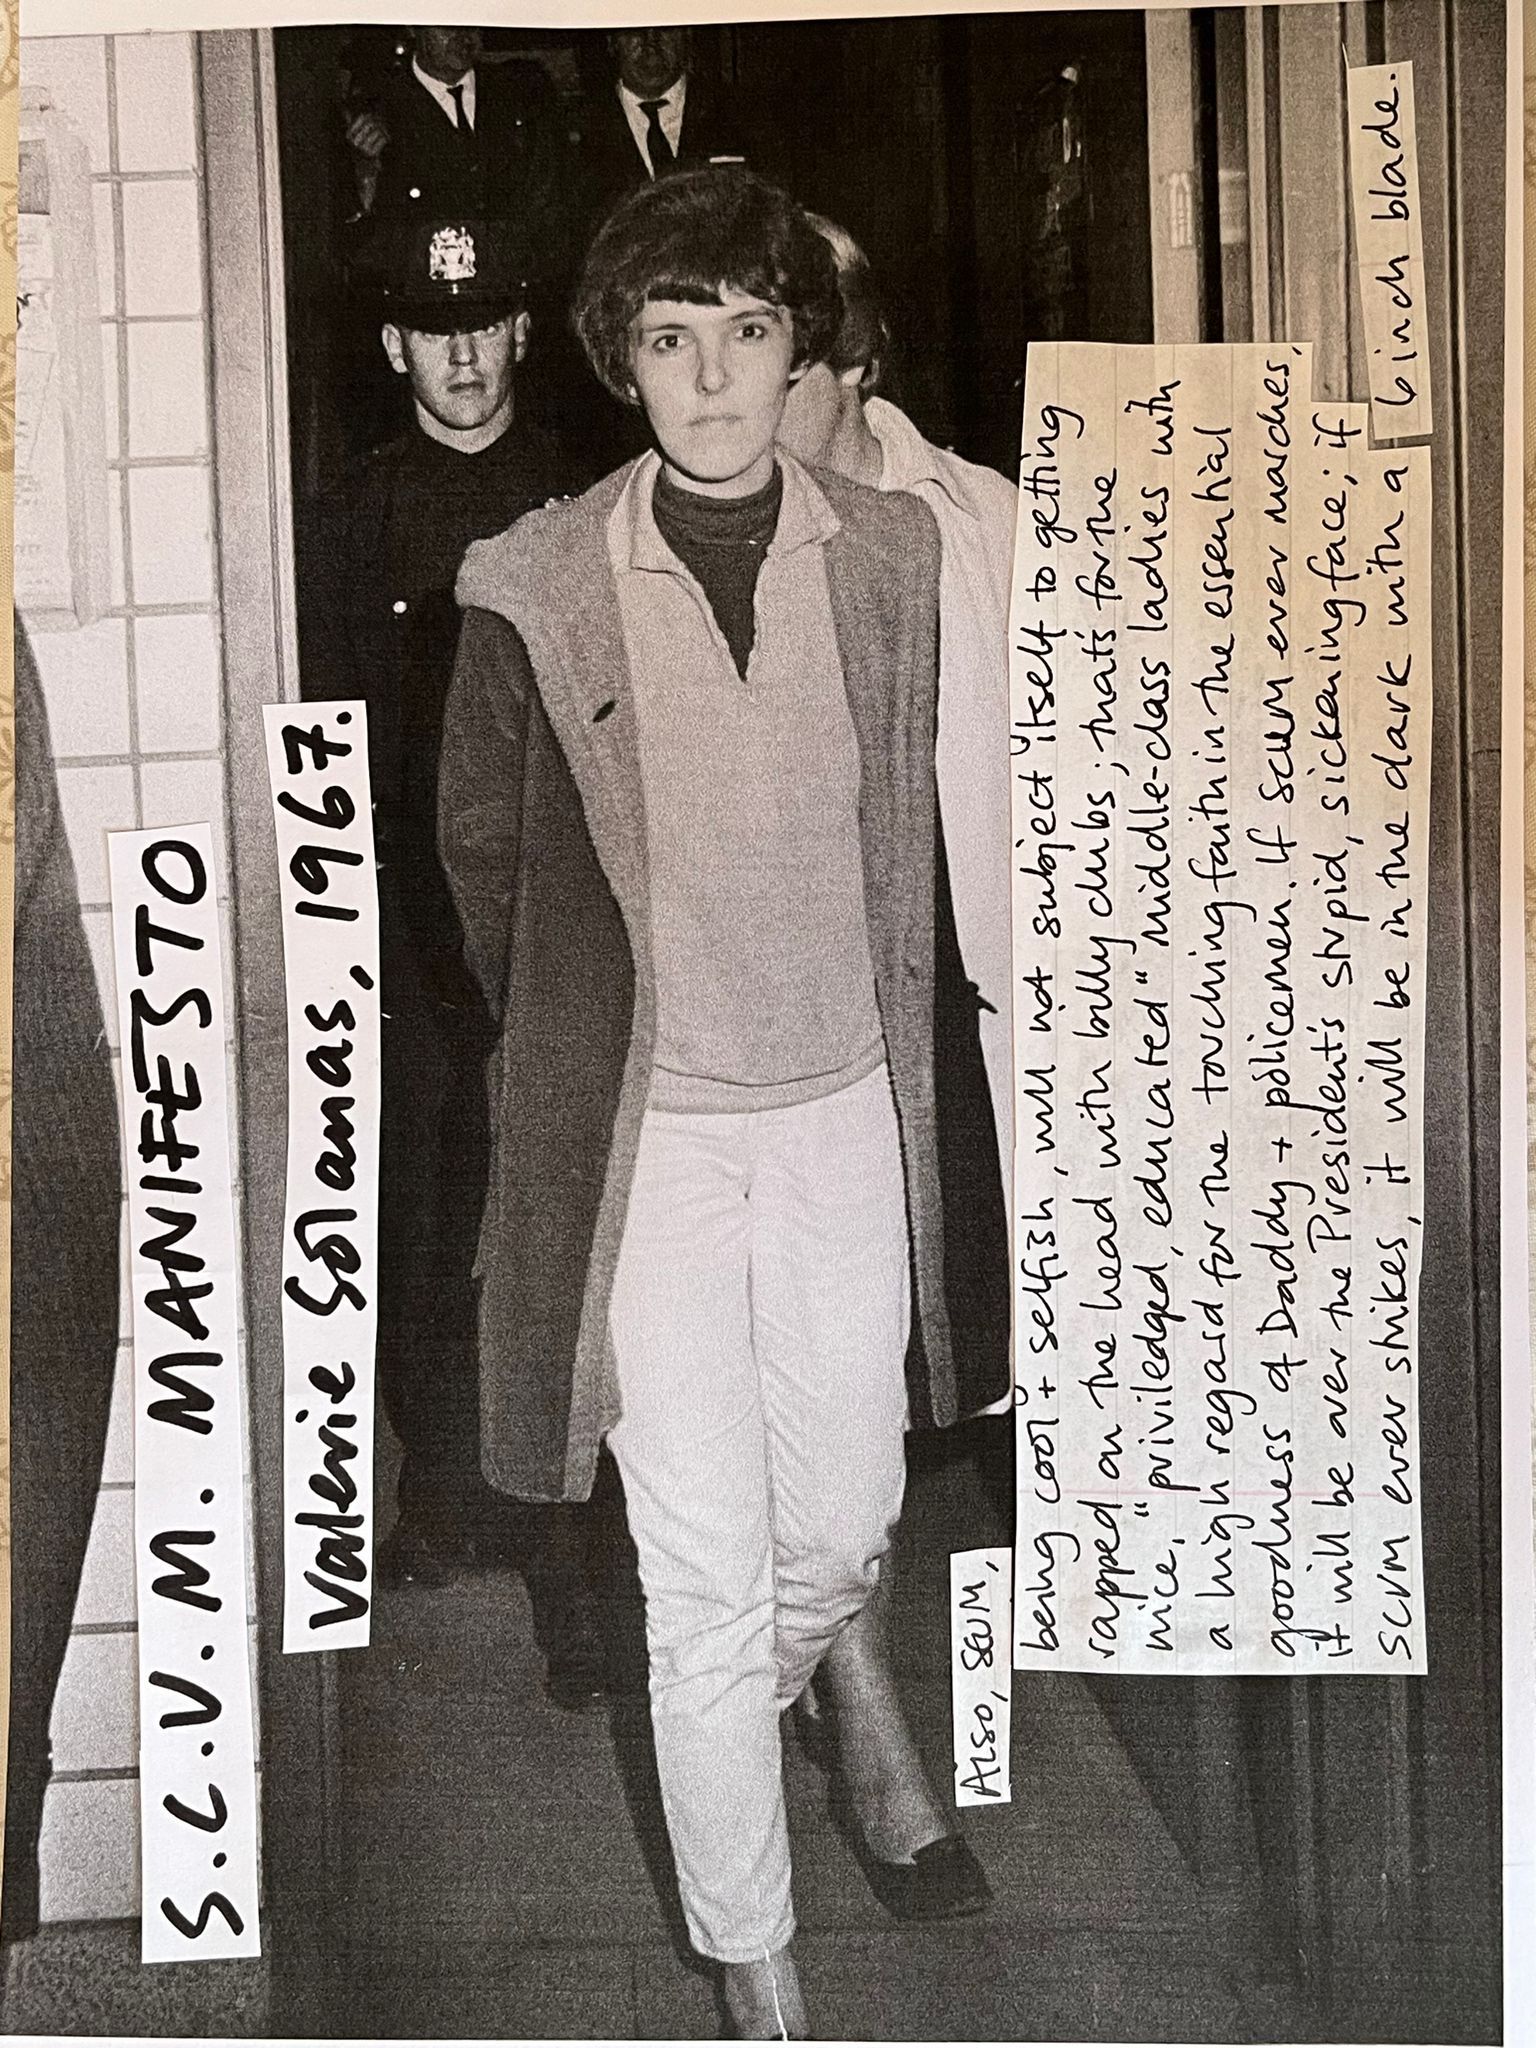 S.C.U.M. MANIFESTO
Valerie Solanas, 1967.
Also, SCUM,
being cool + selfish, will not subject itself to getting
rapped on the head with billy clubs; that's for the
nice, "priviledged, educated" middle-class ladies with
a high regard for the touching faith in the essential
goodness of Daddy + policemen. If SCUM ever marches,
it will be over the President's stupid, sickening face; if
SCUM ever strikes, it will be in the dark with a 6 inch blade.